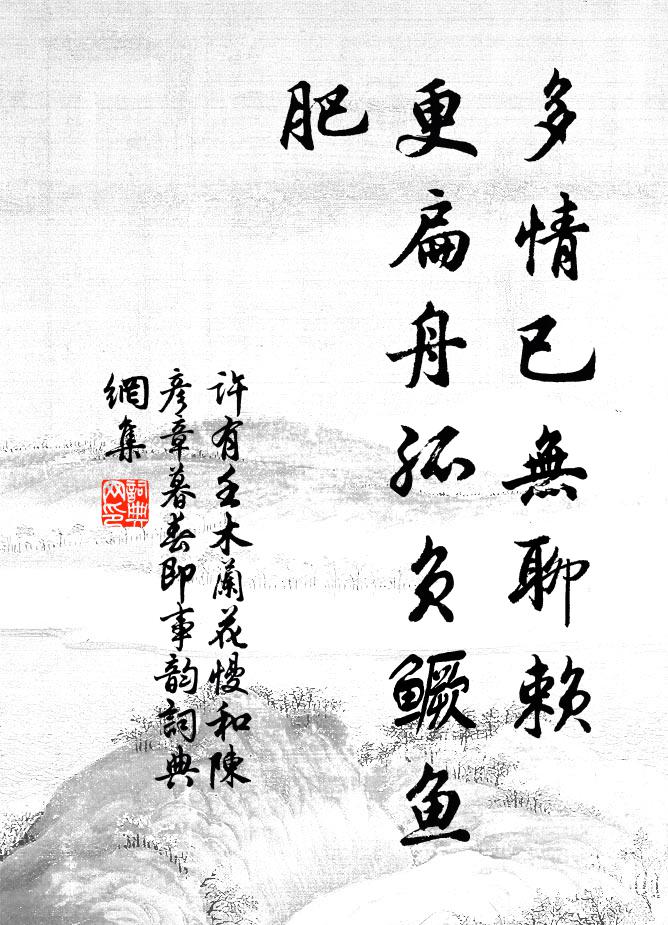 多情已無聊賴
更扁舟孤負鳜魚
肥
許有壬木蘭花慢和陳
彦章暮春即事韵詞典
網集
詞典
网印